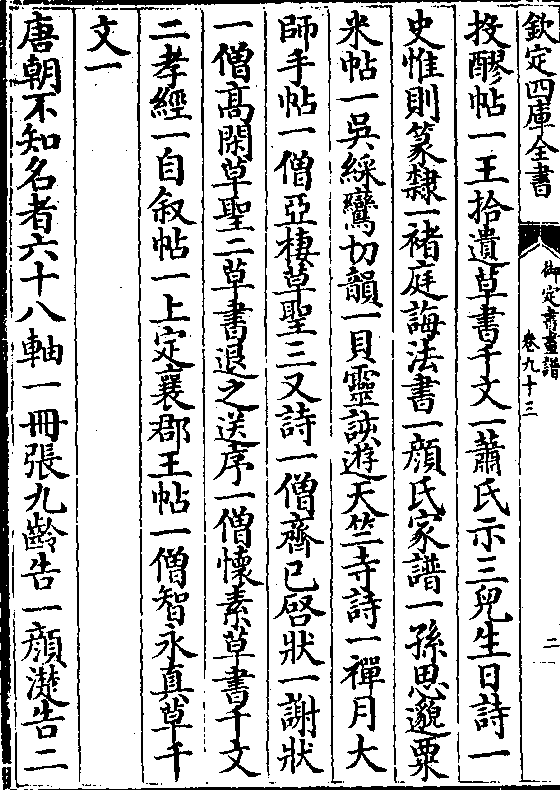 欽定四庫全書
御定書畫譜
卷九十三
二
投醪帖一王拾遺草書千文一蕭氏示三兒生日詩一
史惟則篆隸一褚庭誨法書一顔氏家譜一孫思邈粟
米帖一吳綵鸞切韻一貝靈該遊天竺寺詩一禪月大
師手帖一僧亞棲草聖三又詩一僧齊已啓狀一謝狀
一僧高閑草聖二草書退之送序一僧懷素草書千文
二孝經一自叙帖一上定襄郡王帖一僧智永真草千
文一
唐朝不知名者六十八軸一冊張九齡告一顔㵪告二